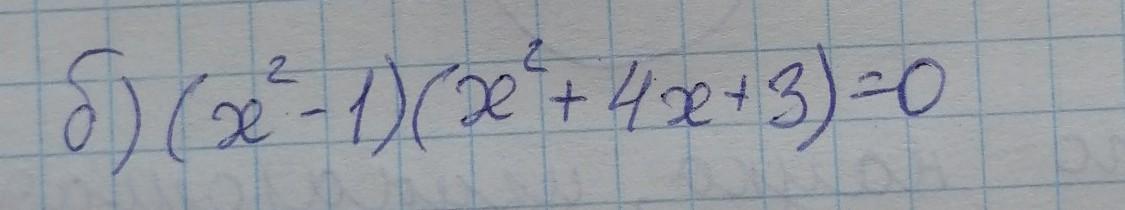 б) (x² - 1)(x² + 4x + 3) = 0